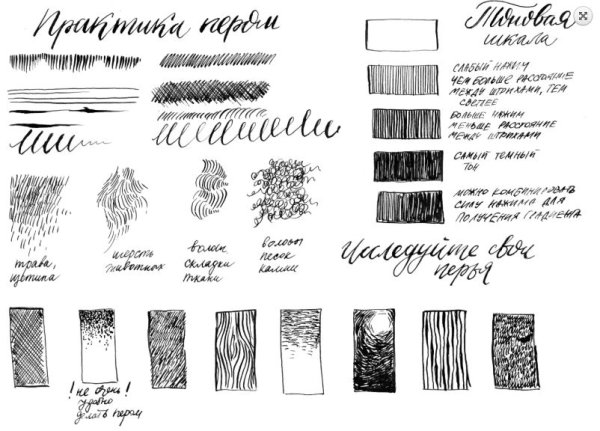 Практика пером
Тоновая
шкала
слабый нажим
чем больше расстояние
между штрихами, тем
светлее
больше нажим
меньше расстояние
между штрихами
самый темный
тон
можно комбинировать
силу нажима для
получения градиента
Исследуйте свои
перья
трава,
щетина
шерсть
животных
волосы
складки
ткани
волосы
песок
камни
! не очень !
удобно
делать пером